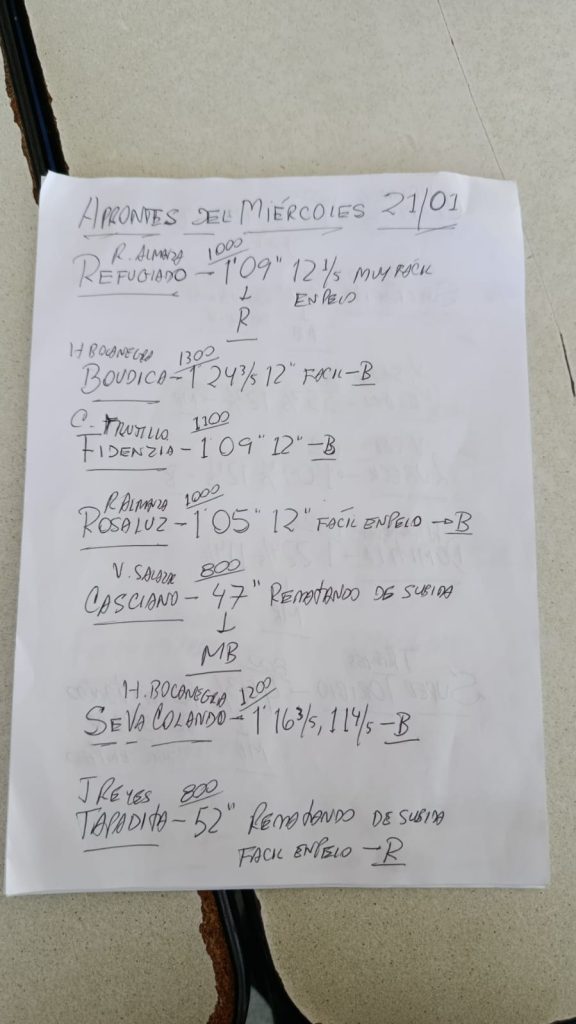 APRONTES DEL MIÉRCOLES 21/01
R. ALMANZA 1000
REFUGIADO - 1'09" 12 1/5 MUY FÁCIL
EN PELO
↓
R
H BOCANEGRA 1300
BOUDICA - 1'24 3/5 12" FACIL - B
C. TRUJILLO 1100
FIDENZIA - 1'09" 12" - B
R ALMANZA 1000
ROSALUZ - 1'05" 12" FACÍL EN PELO → B
V. SALAZAR 800
CASCIANO - 47" REMATANDO DE SUBIDA
↓
MB
H. BOCANEGRA 1200
SE VA COLANDO - 1'16 3/5, 11 4/5 - B
J REYES 800
TAPADITA - 52" REMATANDO DE SUBIDA
FACIL EN PELO - R